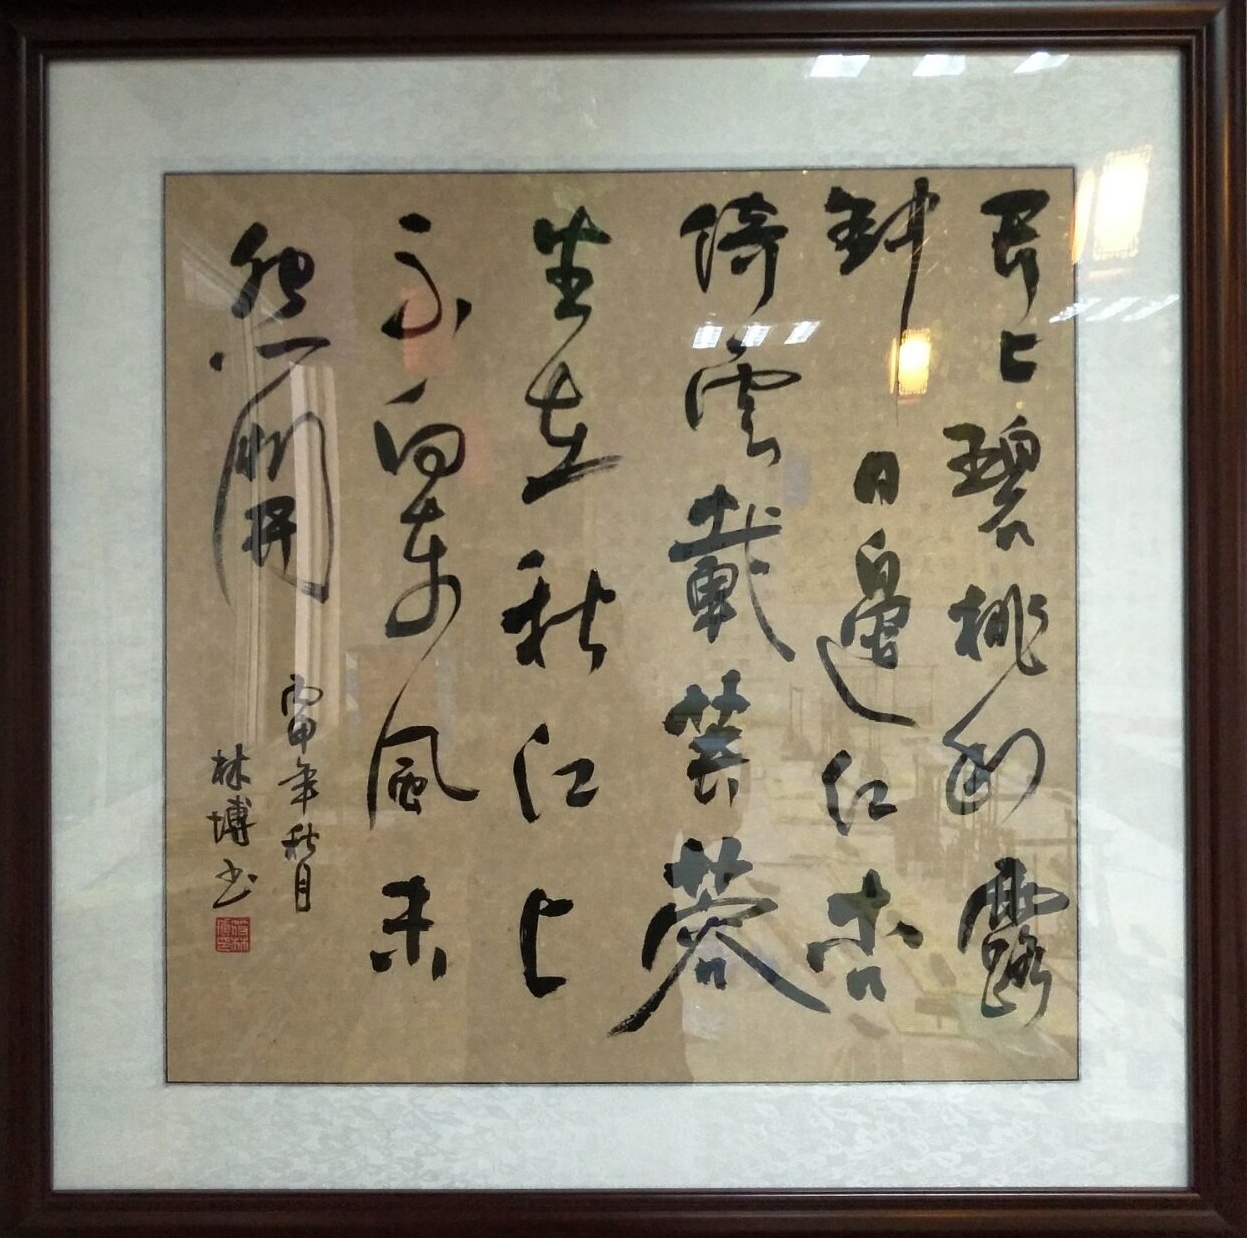 天上碧桃和露
种日邊红杏
倚雲載芙蓉
生在秋江上
不向东風未
怨開
丙申年秋月
林博书